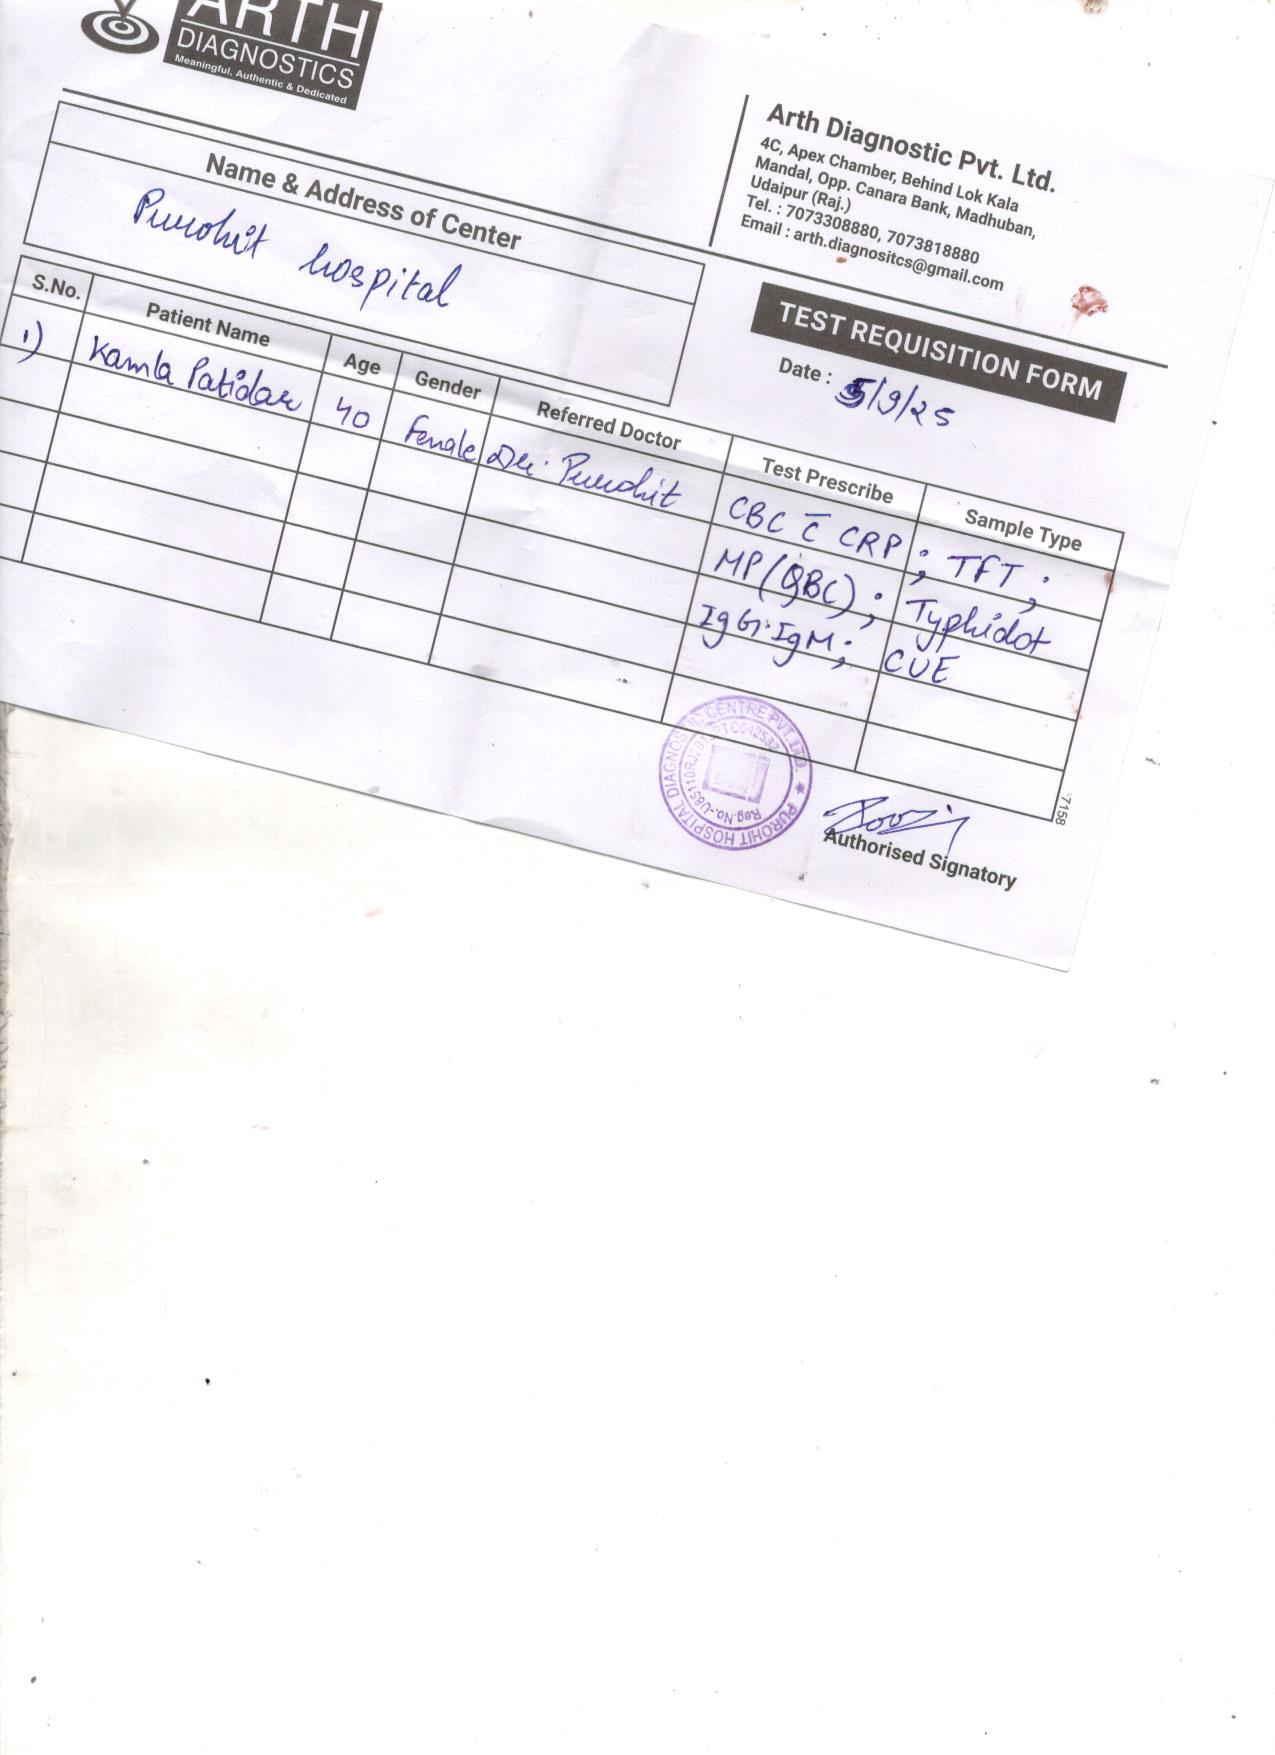 ARTH
DIAGNOSTICS
Meaningful, Authentic & Dedicated
Arth Diagnostic Pvt. Ltd.
4C, Apex Chamber, Behind Lok Kala
Mandal, Opp. Canara Bank, Madhuban,
Udaipur (Raj.)
Tel. : 7073308880, 7073818880
Email : arth.diagnositcs@gmail.com
Name & Address of Center
Purohit hospital
TEST REQUISITION FORM
Date : 5/9/25
S.No. Patient Name Age Gender Referred Doctor Test Prescribe Sample Type
1) Kamla Patidar 40 Female Dr. Purohit CBC c̅ CRP ; TFT ;
MP (QBC) ; Typhidot
IgG. IgM ; CUE
PUROHIT HOSPITAL DIAGNOSTIC CENTRE PVT. LTD.
Authorised Signatory
7158